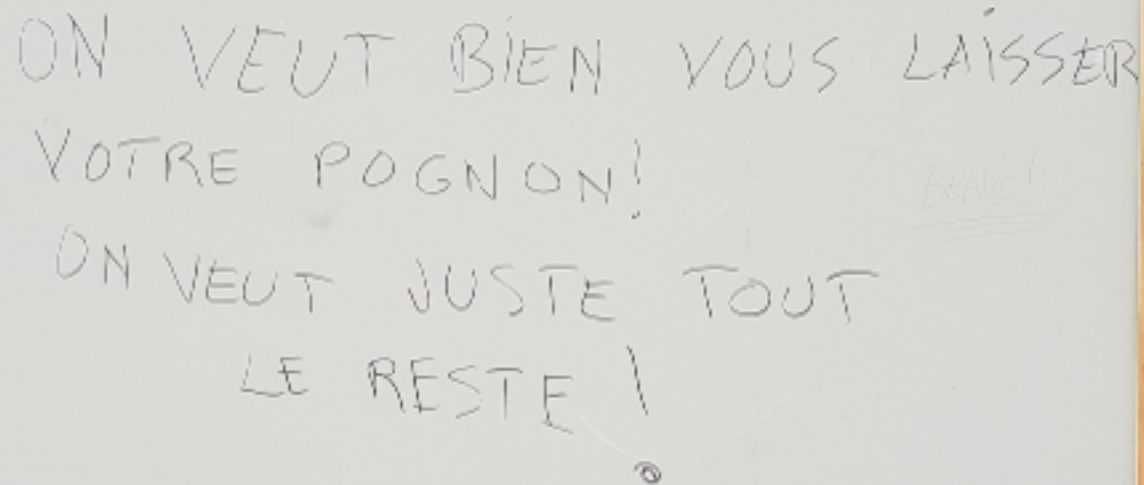 ON VEUT BIEN VOUS LAISSER
VOTRE POGNON!
BRAVO!
ON VEUT JUSTE TOUT
LE RESTE !